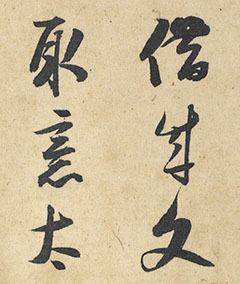 借成文
取意太